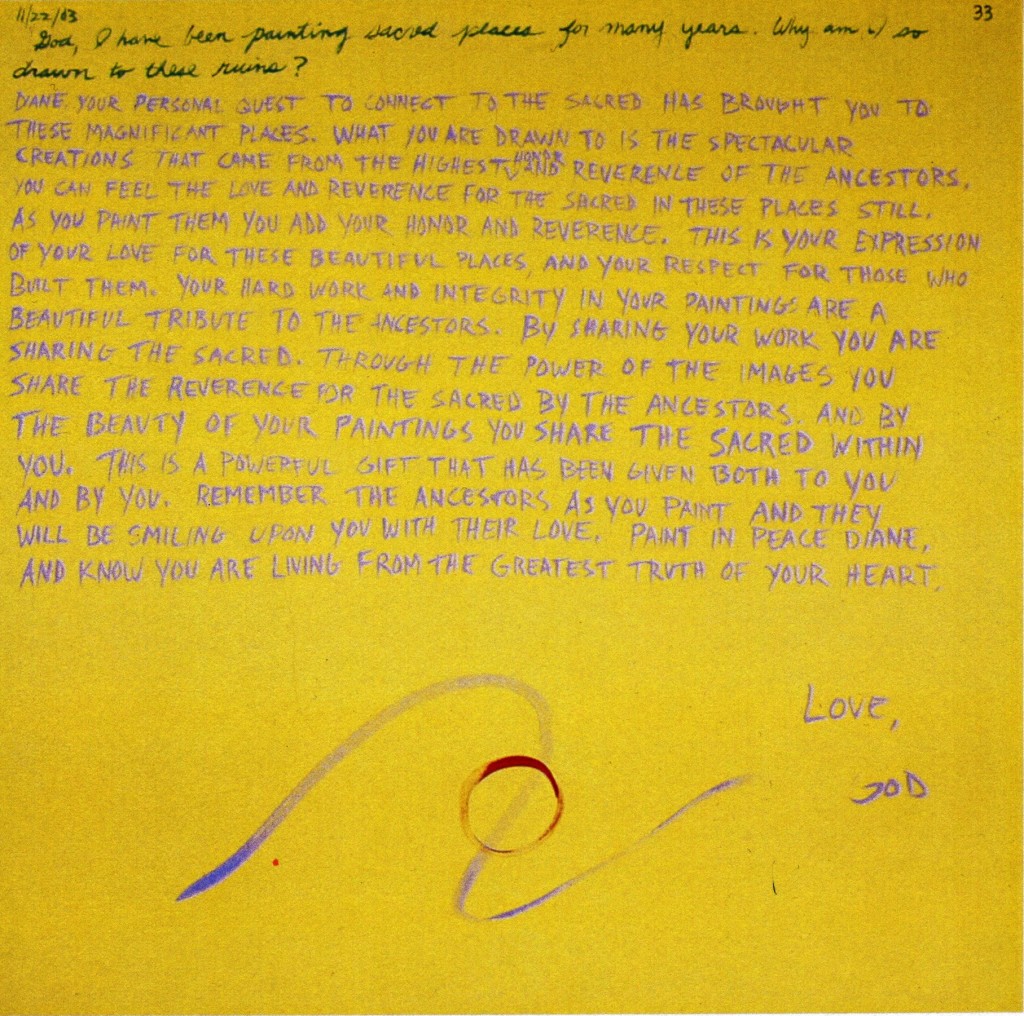 11/22/03
33
God, I have been painting sacred places for many years. Why am I so
drawn to these ruins?
DIANE, YOUR PERSONAL QUEST TO CONNECT TO THE SACRED HAS BROUGHT YOU TO
THESE MAGNIFICANT PLACES. WHAT YOU ARE DRAWN TO IS THE SPECTACULAR
CREATIONS THAT CAME FROM THE HIGHEST HONOR AND REVERENCE OF THE ANCESTORS.
YOU CAN FEEL THE LOVE AND REVERENCE FOR THE SACRED IN THESE PLACES STILL.
AS YOU PAINT THEM YOU ADD YOUR HONOR AND REVERENCE. THIS IS YOUR EXPRESSION
OF YOUR LOVE FOR THESE BEAUTIFUL PLACES, AND YOUR RESPECT FOR THOSE WHO
BUILT THEM. YOUR HARD WORK AND INTEGRITY IN YOUR PAINTINGS ARE A
BEAUTIFUL TRIBUTE TO THE ANCESTORS. BY SHARING YOUR WORK YOU ARE
SHARING THE SACRED. THROUGH THE POWER OF THE IMAGES YOU
SHARE THE REVERENCE FOR THE SACRED BY THE ANCESTORS. AND BY
THE BEAUTY OF YOUR PAINTINGS YOU SHARE THE SACRED WITHIN
YOU. THIS IS A POWERFUL GIFT THAT HAS BEEN GIVEN BOTH TO YOU
AND BY YOU. REMEMBER THE ANCESTORS AS YOU PAINT AND THEY
WILL BE SMILING UPON YOU WITH THEIR LOVE. PAINT IN PEACE DIANE,
AND KNOW YOU ARE LIVING FROM THE GREATEST TRUTH OF YOUR HEART.
LOVE,
GOD